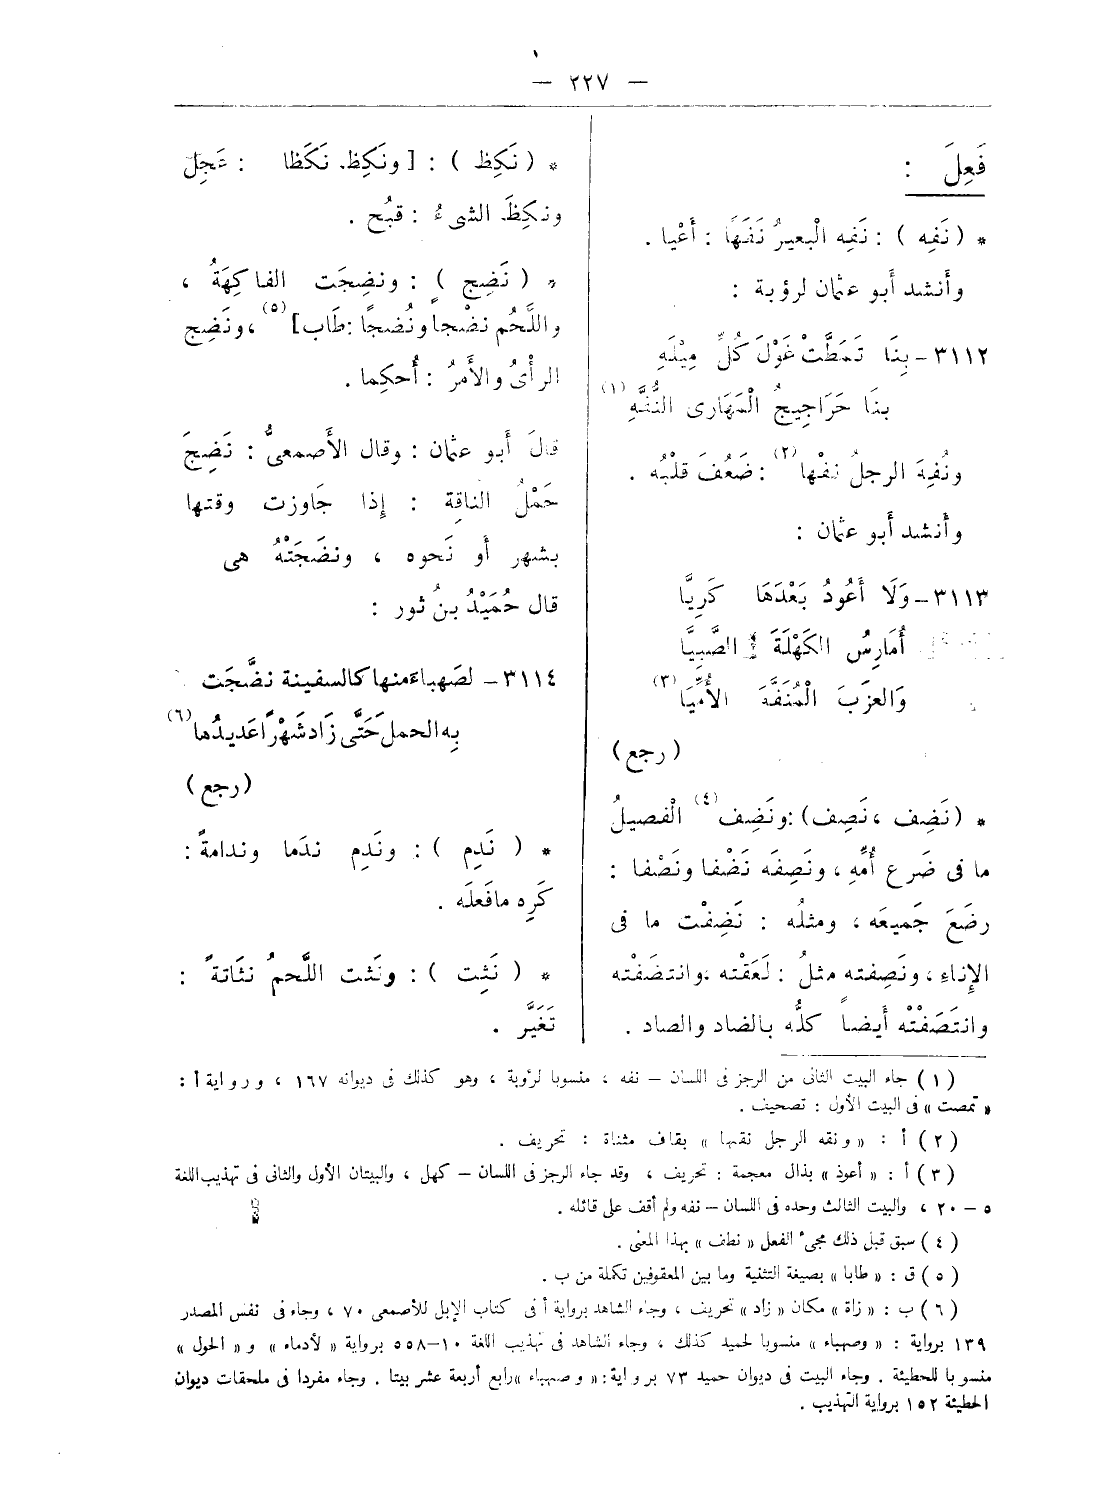 — ٢٢٧ —
فَعِلَ :
* ( نَفِه ) : نَفِه الْبعيرُ نَفَهًا : أَعْيا .
وأنشد أبو عثمان لرؤبة :
٣١١٢ – بِنَا تَمَطَّتْ غَوْلَ كُلِّ مِيْلَهِ
بنَا حَرَاجِيجُ الْمَهَارى النُّفَّهِ (١)
ونُفِهَ الرجلُ نفْها (٢) : ضَعُفَ قلبُه .
وأنشد أبو عثمان :
٣١١٣ – وَلَا أَعُودُ بَعْدَهَا كَرِيًّا
أُمَارِسُ الكَهْلَةَ و الصَّبِيَّا
وَالعزَبَ الْمُنَفَّهَ الأُمِّيَّا (٣)
( رجع )
* ( نَضِف ، نَصِف ) : ونَضِف (٤) الْفصيلُ
ما فى ضَرع أُمِّهِ ، ونَصِفَه نَضْفا ونَصْفا :
رضَعَ جَميعَه ، ومثلُه : نَضِفْت ما فى
الإناءِ ، ونَصِفته مثلُ : لَعَقْته ، وانتضَفْته
وانتَصَفْتْه أيضاً كلُّه بالضاد والصاد .
* ( نَكِظ ) : [ ونَكِظ نَكَظا : عَجِلَ
ونكِظَ الشىءُ : قبُح .
* ( نَضِج ) : ونضِجَت الفاكِهَةُ ،
واللَّحُم نضْجاً ونُضجًا : طَاب ] (٥) ، ونَضِج
الرأْىُ والأَمرُ : أُحكِما .
قالَ أَبو عثمان : وقال الأَصمعىُّ : نَضِجَ
حَمْلُ الناقِة : إِذا جَاوزت وقتها
بشهر أَو نَحوه ، ونضَجَتْهُ هى
قال حُمَيْدُ بنُ ثور :
٣١١٤ – لصَهباءَ منها كالسفينة نضَّجَت
بِه الحملَ حَتَّى زَاد شَهْرًا عَديدُها (٦)
( رجع )
* ( نَدِم ) : ونَدِم ندَما وندامةً :
كَرِه مافَعلَه .
* ( نَثِت ) : ونَثت اللَّحمُ نثَاتةً :
تَغَيَّر .
( ١ ) جاء البيت الثانى من الرجز فى اللسان – نفه ، منسوبا لرؤبة ، وهو كذلك فى ديوانه ١٦٧ ، ورواية أ :
« تمصت » فى البيت الأول : تصحيف .
( ٢ ) أ : « ونقه الرجل نقها » بقاف مثناة : تحريف .
( ٣ ) أ : « أعوذ » بذال معجمة : تحريف ، وقد جاء الرجز فى اللسان – كهل ، والبيتان الأول والثانى فى تهذيب اللغة
٥ – ٢٠ ، والبيت الثالث وحده فى اللسان – نفه ولم أقف على قائله .
( ٤ ) سبق قبل ذلك مجىء الفعل « نطف » بهذا المعنى .
( ٥ ) ق : « طابا » بصيغة التثنية وما بين المعقوفين تكملة من ب .
( ٦ ) ب : « زاة » مكان « زاد » تحريف ، وجاء الشاهد برواية أ فى كتاب الإبل للأصمعى ٧٠ ، وجاء فى نفس المصدر
١٣٩ برواية : « وصهباء » منسوبا لحميد كذلك ، وجاء الشاهد فى تهذيب اللغة ١٠–٥٥٨ برواية « لأدماء » و « الحول »
منسوبا للحطيئة . وجاء البيت فى ديوان حميد ٧٣ برواية : « وصهباء » رابع أربعة عشر بيتا . وجاء مفردا فى ملحقات ديوان
الحطيئة ١٥٢ برواية التهذيب .